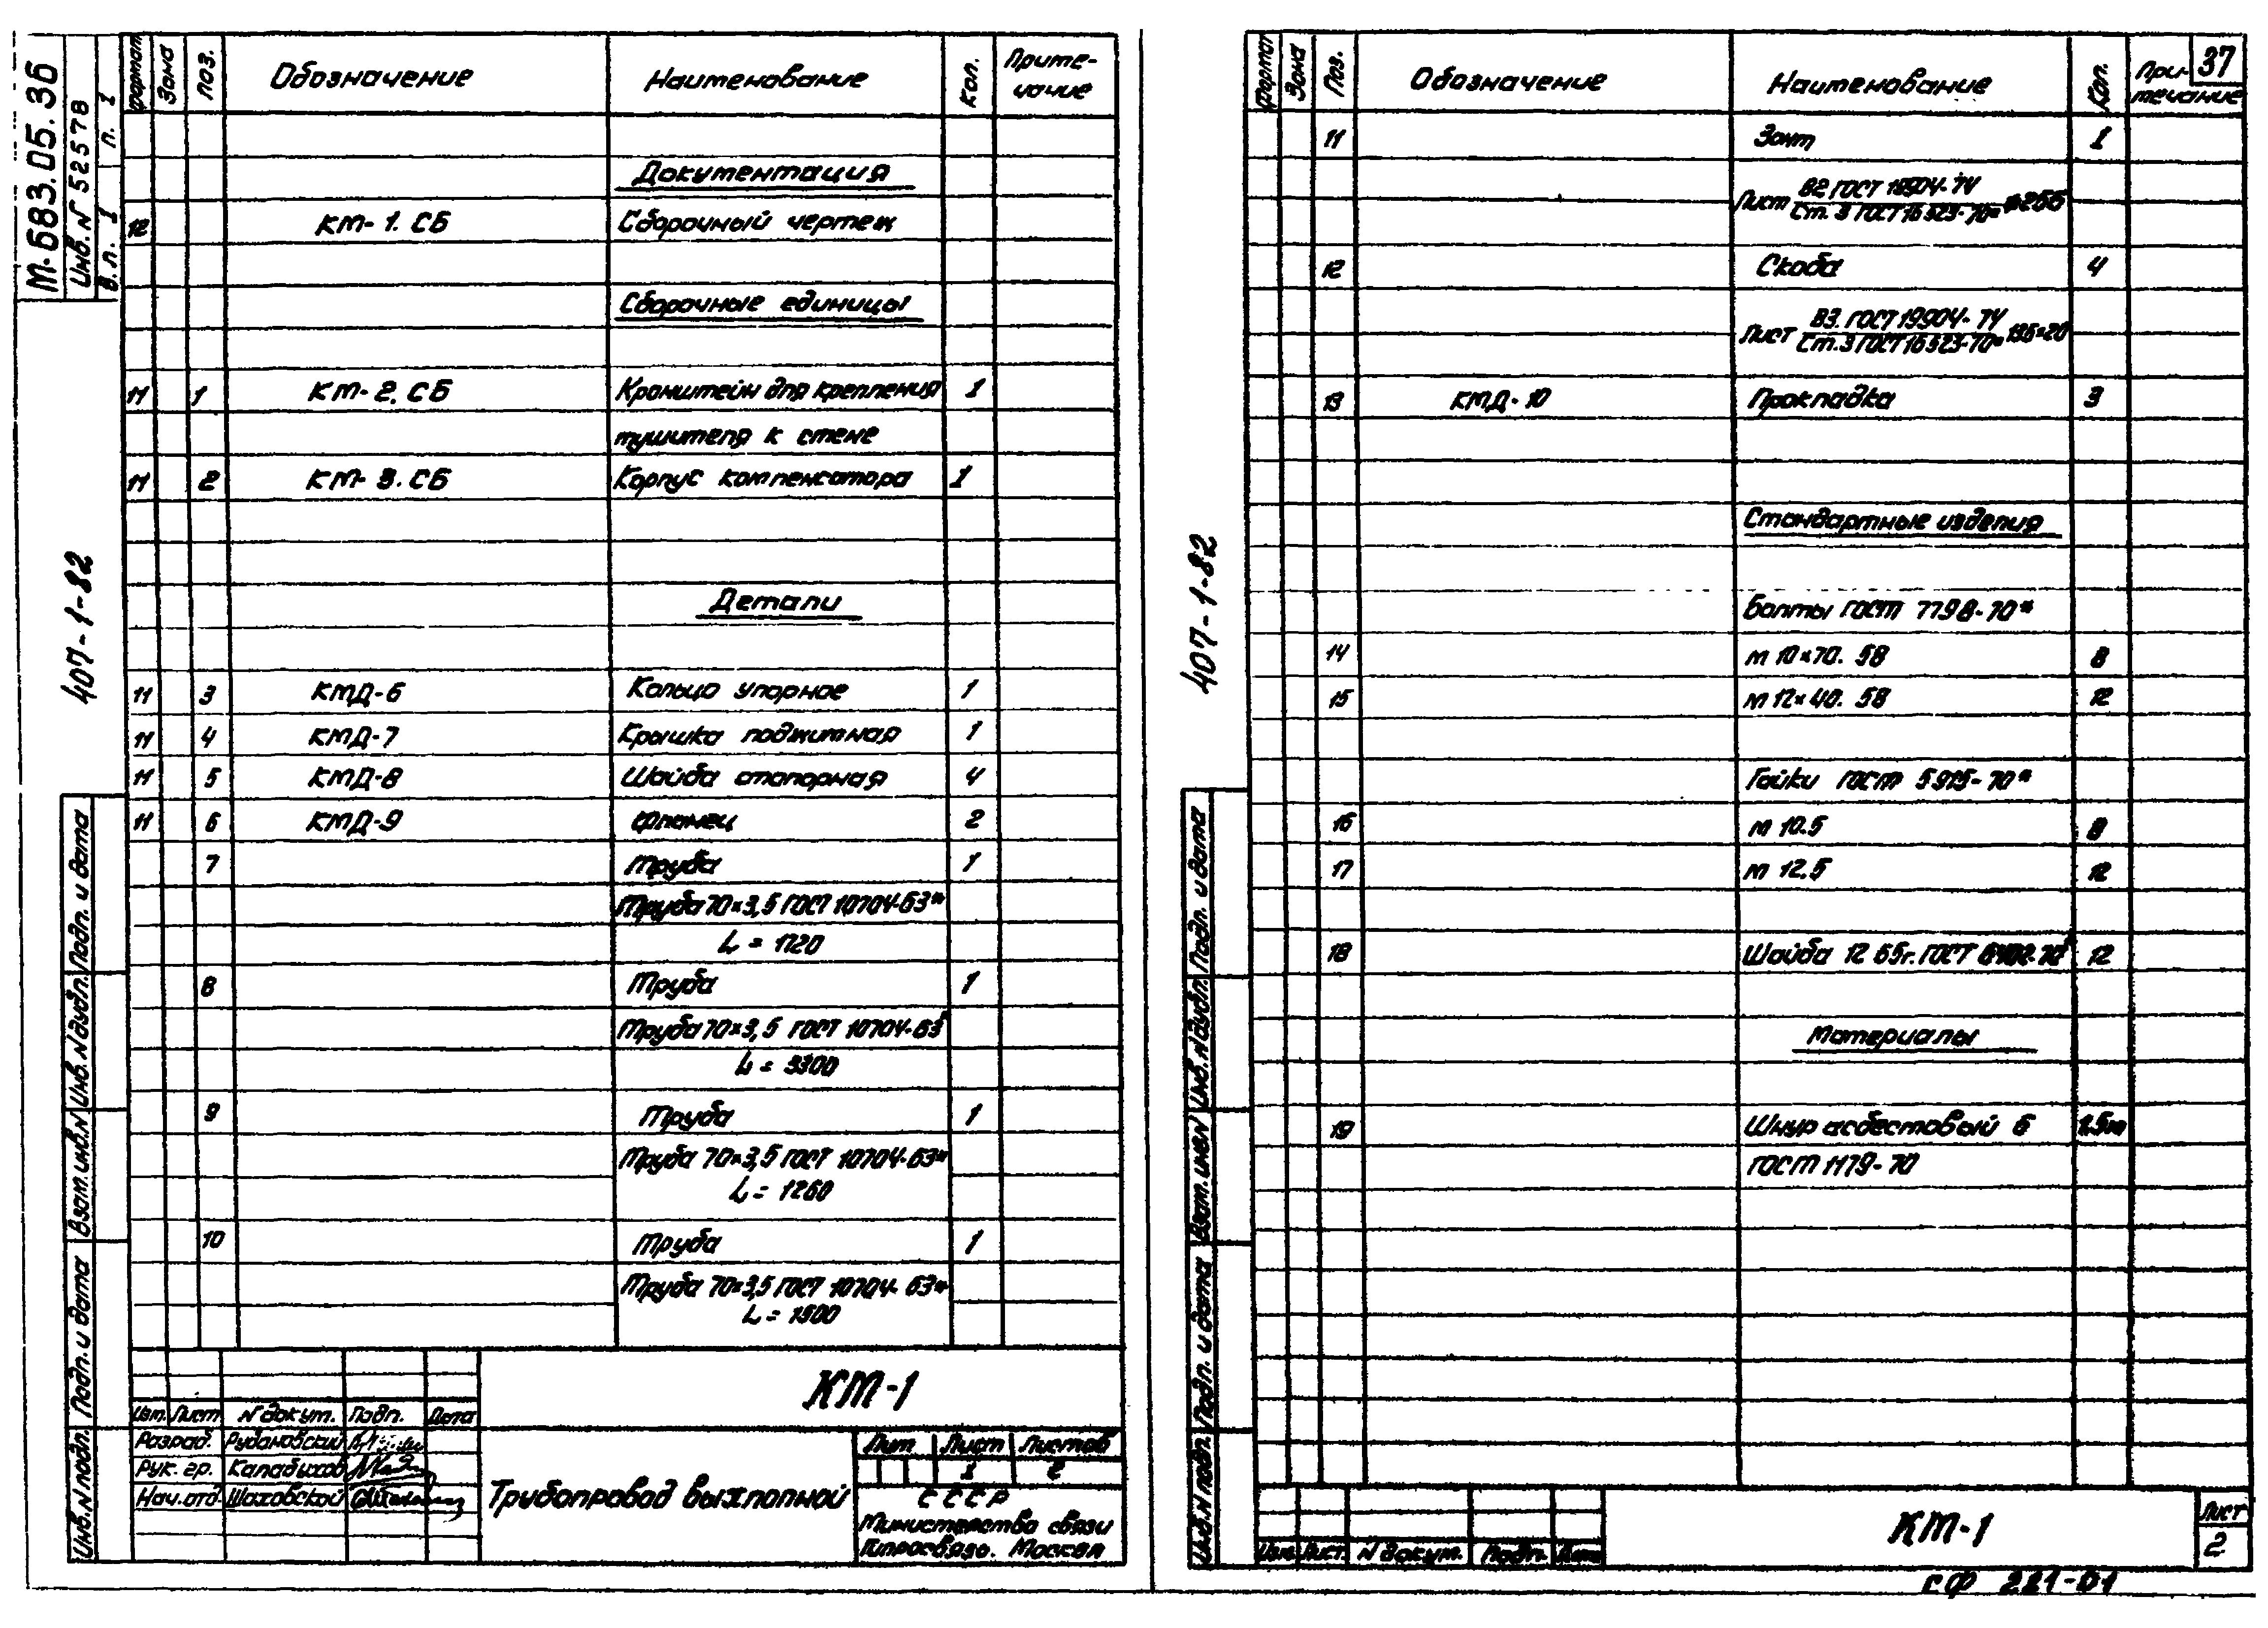 М-683.05.36
Инв.N 52578
В.п. I п. I
407-1-82
формат Зона Поз. Обозначение Наименование Кол. Приме-
чание
Документация
12 КМ-1.СБ Сборочный чертеж
Сборочные единицы
11 1 КМ-2.СБ Кронштейн для крепления 1
глушителя к стене
11 2 КМ-3.СБ Корпус компенсатора 1
Детали
11 3 КМД-6 Кольцо упорное 1
11 4 КМД-7 Крышка поджимная 1
11 5 КМД-8 Шайба стопорная 4
11 6 КМД-9 Фланец 2
7 Труба 1
Труба 70×3,5 ГОСТ 10704-63*
L = 1720
8 Труба 1
Труба 70×3,5 ГОСТ 10704-63*
L = 3300
9 Труба 1
Труба 70×3,5 ГОСТ 10704-63*
L = 1260
10 Труба 1
Труба 70×3,5 ГОСТ 10704-63*
L = 1500
Подп. и дата
Инв.N дубл.
Взам. инв.N
Подп. и дата
Инв.N подл.
КМ-1
Изм. Лист N докум. Подп. Дата
Разраб. Рудановский
Рук. гр. Карабыхов
Нач. отд. Шаховской
Трубопровод выхлопной
Лит Лист Листов
1 2
СССР
Министерство связи
Гипросвязь. Москва
37
формат Зона Поз. Обозначение Наименование Кол. При-
мечание
11 Зонт 1
В2 ГОСТ 19904-74
Лист Ст.3 ГОСТ 16523-70*
12 Скоба 4
В3. ГОСТ 19904-74
Лист Ст.3 ГОСТ 16523-70* 135×20
13 КМД-10 Прокладка 3
Стандартные изделия
Болты ГОСТ 7798-70*
14 М 10×70. 58 8
15 М 12×40. 58 12
Гайки ГОСТ 5915-70*
16 М 10.5 8
17 М 12.5 12
18 Шайба 12 65г. ГОСТ 6402-70* 12
Материалы
19 Шнур асбестовый 6 1.5м
ГОСТ 1179-70
407-1-82
Подп. и дата
Инв.N дубл.
Взам. инв.N
Подп. и дата
Инв.N подл.
Изм. Лист. N докум. Подп. Дата
КМ-1
Лист
2
СФ 221-01